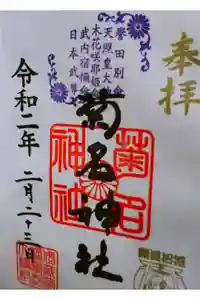 奉拝
誉田別命
天照皇大神
木花咲耶姫命
武内宿禰命
日本武尊
菊名神社
菊名
神社
令和二年 二月二十三日